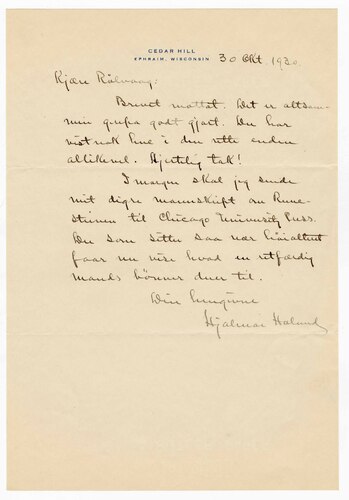 CEDAR HILL
EPHRAIM, WISCONSIN
30 Okt. 1930
Kjære Rölvaag:
Brevet mottat. Det er altsam-
men godt gjort. Du har
nok i den rette enden
allikevel. Hjertelig tak!
I morgen skal jeg sende
mit digre manuskript om Rune-
stenen til Chicago University Press.
Du som sitter saa nær høialteret
faar nu vise hvad en retfærdig
mands bönner duer til.
Din hengivne
Hjalmar Holand